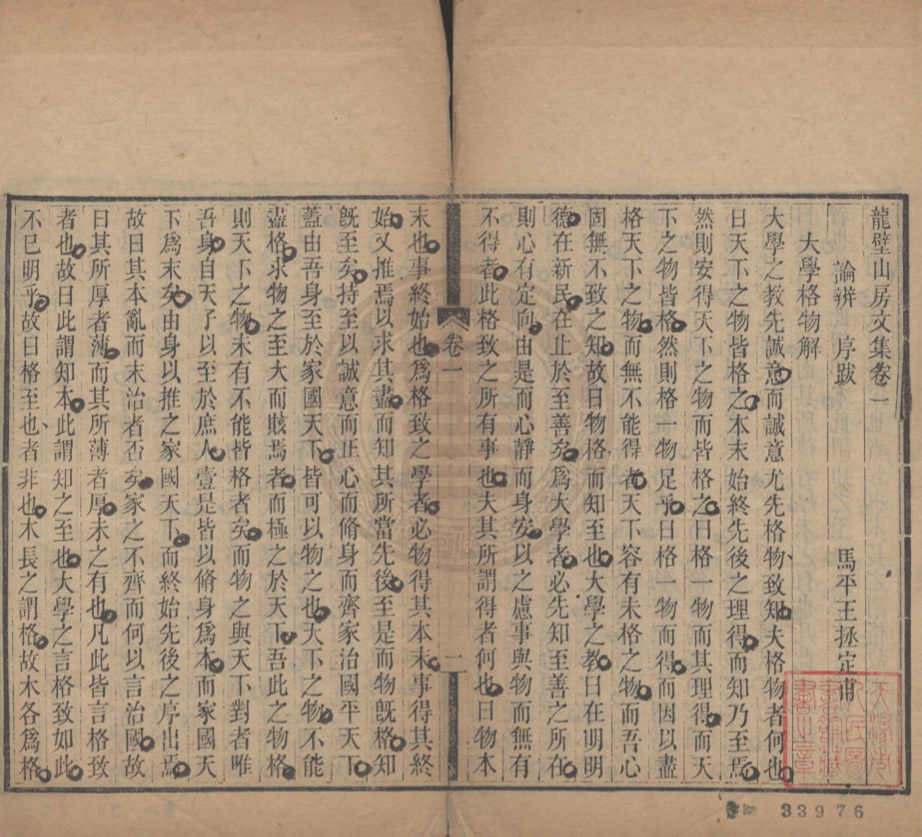 龍壁山房文集卷一
論辨 序跋 馬平王拯定甫
大學格物解
大學之敎先誠意而誠意尤先格物致知夫格物者何也
曰天下之物皆格之本末始終先後之理得而知乃至焉
然則安得天下之物而皆格之曰格一物而其理得而天
下之物皆格然則格一物足乎曰格一物而得而因以盡
格天下之物而無不能得者天下容有未格之物而吾心
固無不致之知故曰物格而知至也大學之敎曰在明明
德在新民在止於至善矣爲大學者必先知至善之所在
則心有定向由是而心靜而身安以之慮事與物而無有
不得者此格致之所有事也夫其所謂得者何也曰物本
卷一
一
末也事終始也爲格致之學者必物得其本末事得其終
始又推焉以求其盡而知其所當先後至是而物旣格知
旣至矣持至以誠意而正心而脩身而齊家治國平天下
蓋由吾身至於家國天下皆可以物之也天下之物不能
盡格求物之至大而賅焉者而極之於天下吾此之物格
則天下之物未有不能皆格者矣而物之與天下對者唯
吾身自天子以至於庶人壹是皆以脩身爲本而家國天
下爲末矣由身以推之家國天下而終始先後之序出焉
故曰其本亂而末治者否矣家之不齊而何以言治國故
曰其所厚者薄而其所薄者厚未之有也凡此皆言格致
者也故曰此謂知本此謂知之至也大學之言格致如此
不已明乎故曰格至也者非也木長之謂格故木各爲格
33976